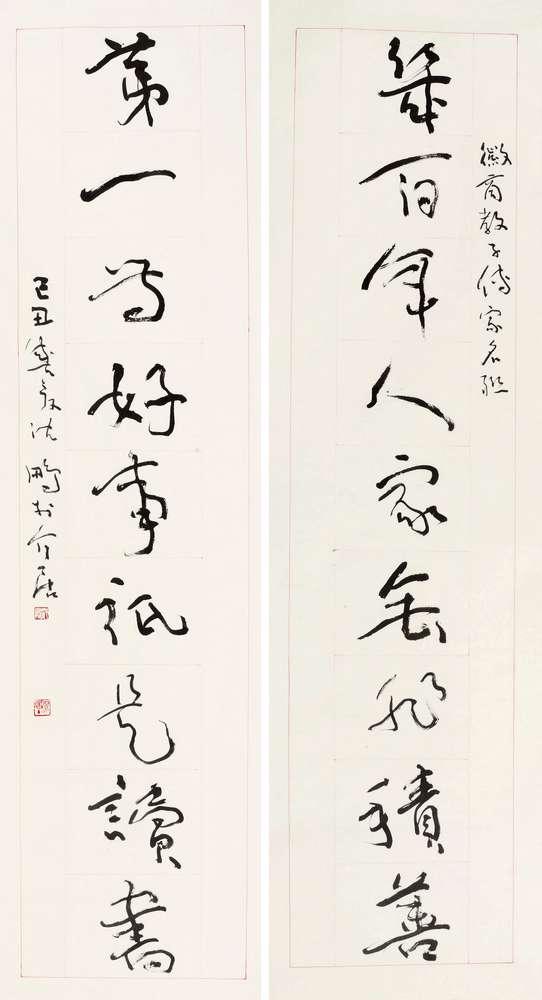 徽商教子傳家名聯
幾百年人家無非積善
第一等好事祇是讀書
己丑沈鵬於介居